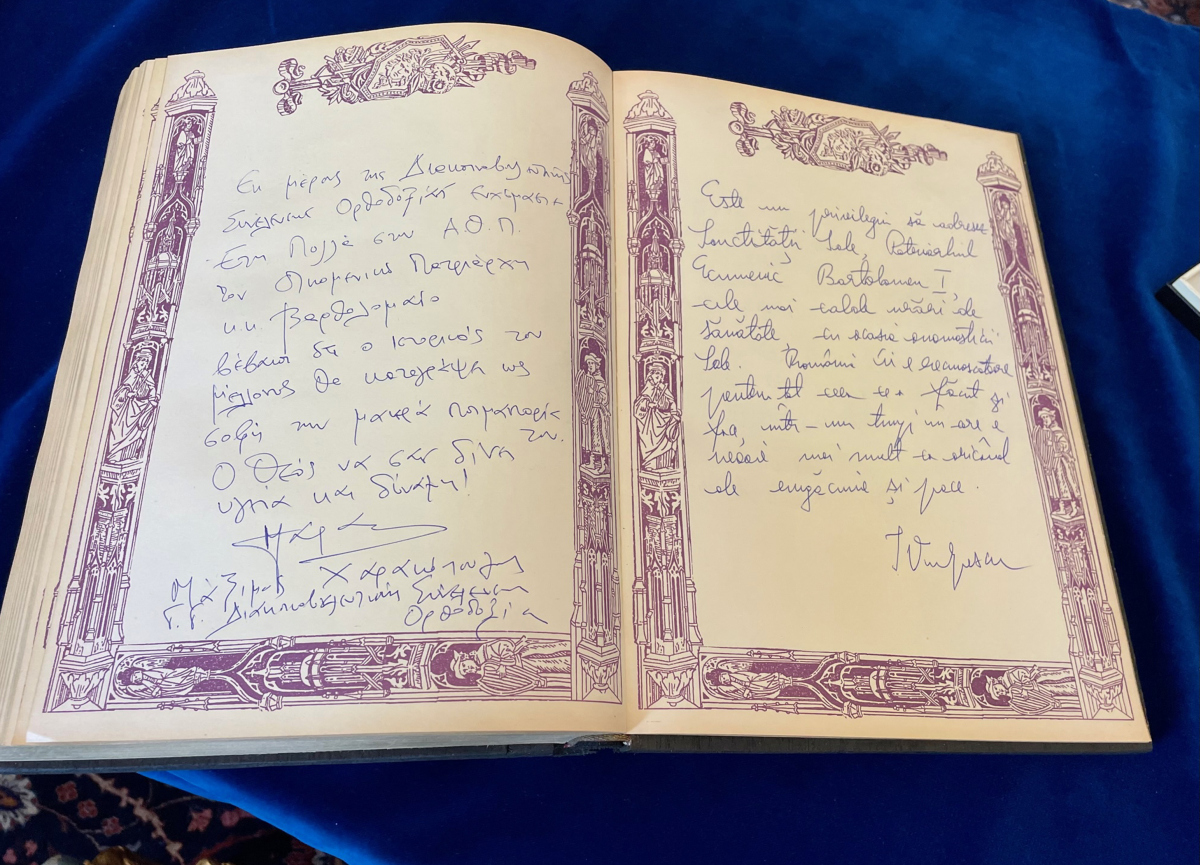 Εκ μέρους της Διακοινοβουλευτικής
Συνέλευσης Ορθοδοξίας ευχόμαστε
Έτη Πολλά στην Α.Θ.Π.
τον Οικουμενικό Πατριάρχη
κ.κ. Βαρθολομαίο
βέβαιοι ότι ο ιστορικός του
μέλλοντος θα καταγράψει ως
σοφή την μακρά ποιμαντορία του.
Ο Θεός να σας δίνει
υγεία και δύναμη!
Μάξιμος Χαρακόπουλος
Γ.Γ. Διακοινοβουλευτικής Συνέλευσης
Ορθοδοξίας
Este un privilegiu să adresez
Sanctității Sale, Patriarhul
Ecumenic Bartolomeu I,
cele mai calde urări de
sănătate, cu ocazia onomasticii
Sale. Românii Îi e recunoscătoare
pentru tot ceea ce a făcut și
face, într-un timp în care e
nevoie mai mult ca oricând
de rugăciune și pace.